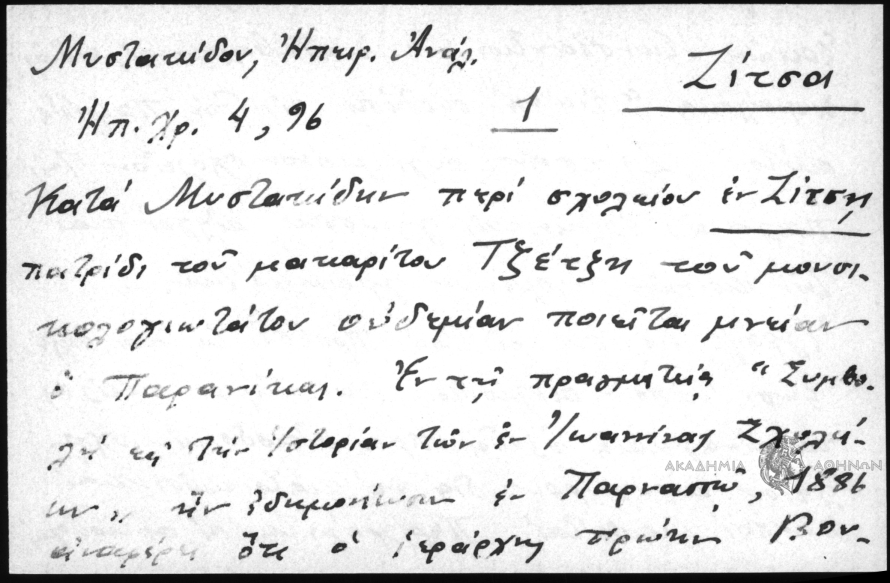 Μυστακίδου, Ἠπειρ. Ἀνάλ.
Ζίτσα
Ἠπ. Χρ. 4, 96
1
Κατά Μυστακίδην περί σχολείου ἐν Ζίτσῃ
πατρίδι τοῦ μακαρίτου Τζέτζη τοῦ μουσι-
κολογιωτάτου οὐδεμίαν ποιεῖται μνείαν
ὁ Παρανίκας. Ἐν τῇ πραγματείᾳ "Συμβο-
λή εἰς τήν Ἱστορίαν τῶν ἐν Ἰωαννίνοις Σχολεί-
ων" ἥν ἐδημοσίευσεν ἐν Παρνασσῷ, 1886
ἀναφέρει ὅτι ὁ ἱεράρχης πρώην Βου-
ΑΚΑΔΗΜΙΑ ΑΘΗΝΩΝ